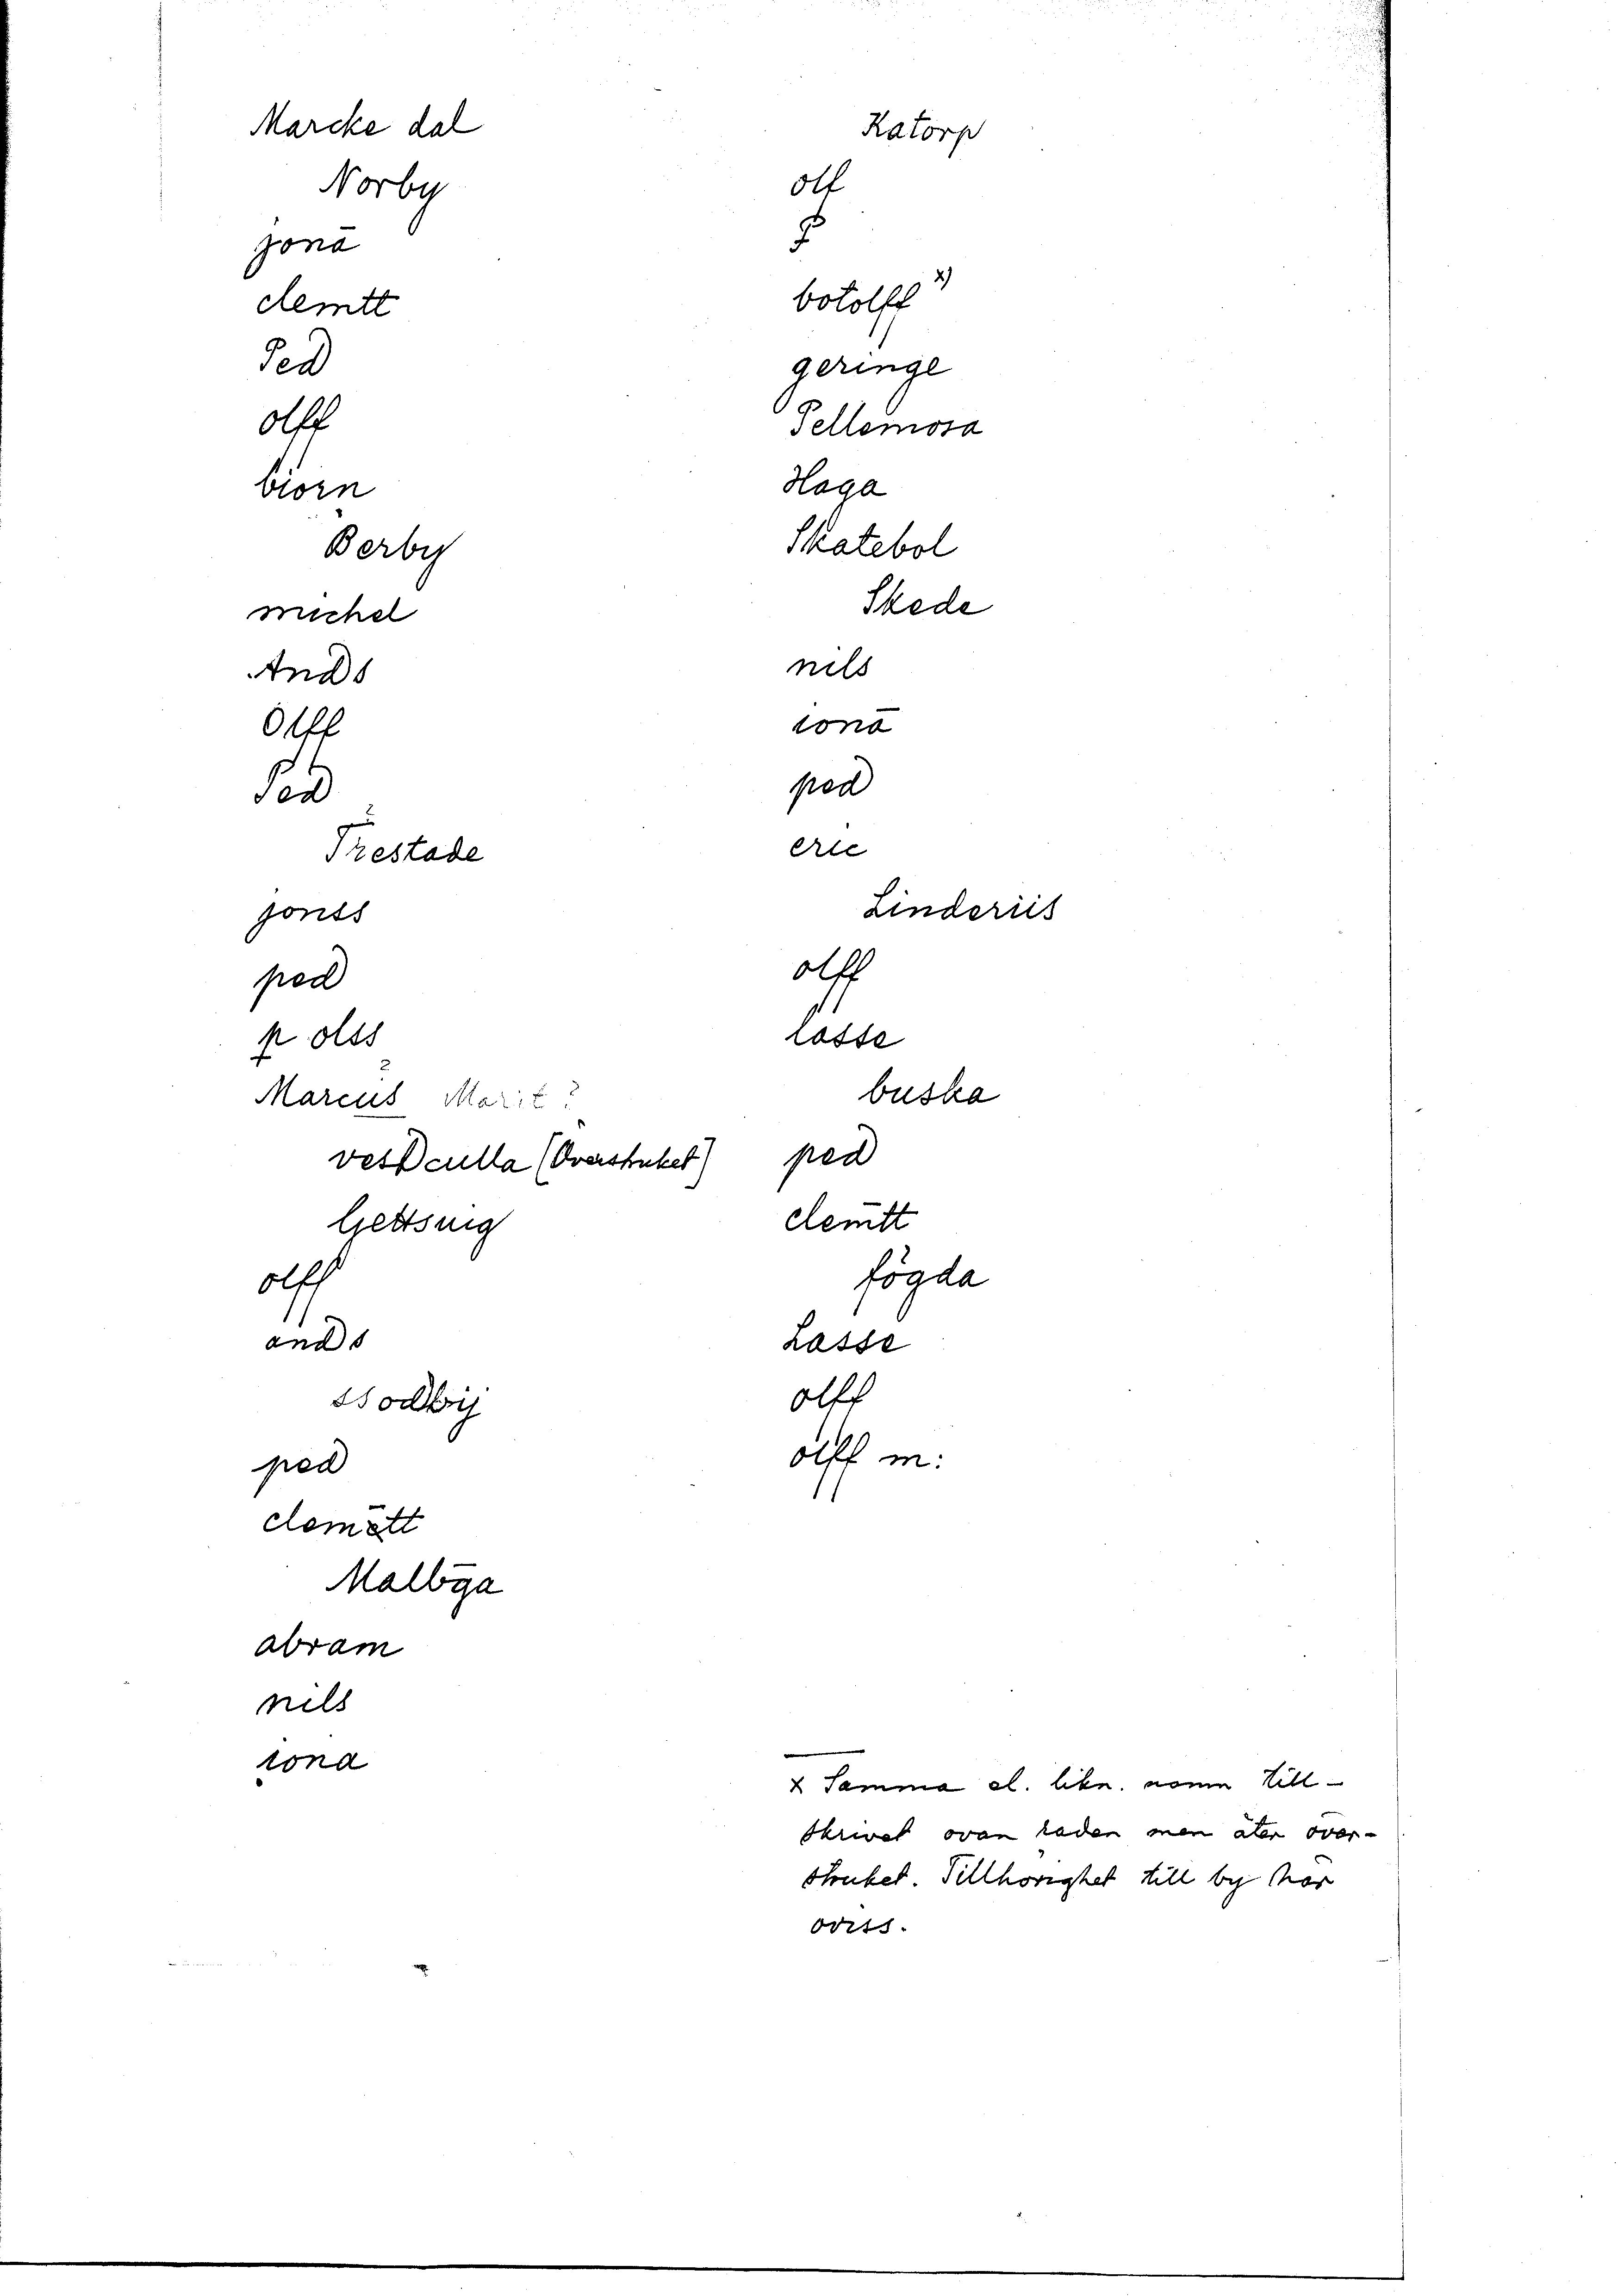 Marcke dal
Norby
jonā
clemtt
Ped
olff
biorn
Berby
michel
Ands
Olff
Ped
Trestade
jonss
ped
p olss
Marcus Marit?
vestculla (Överstruket)
Gettsnig
olff
ands
Hodbij
ped
clemētt
Malbga
abram
nils
iona
Katorp
olf
botolff x)
geringe
Pellemosa
Haga
Skatebol
Skede
nils
ionā
ped
eric
Linderiis
olff
lasse
buska
ped
clemtt
fögda
Lasse
olff
olff m:
x Samma el. likn. namn till-
skrivet ovan raden men åter över-
struket. Tillhörighet till by här
oviss.